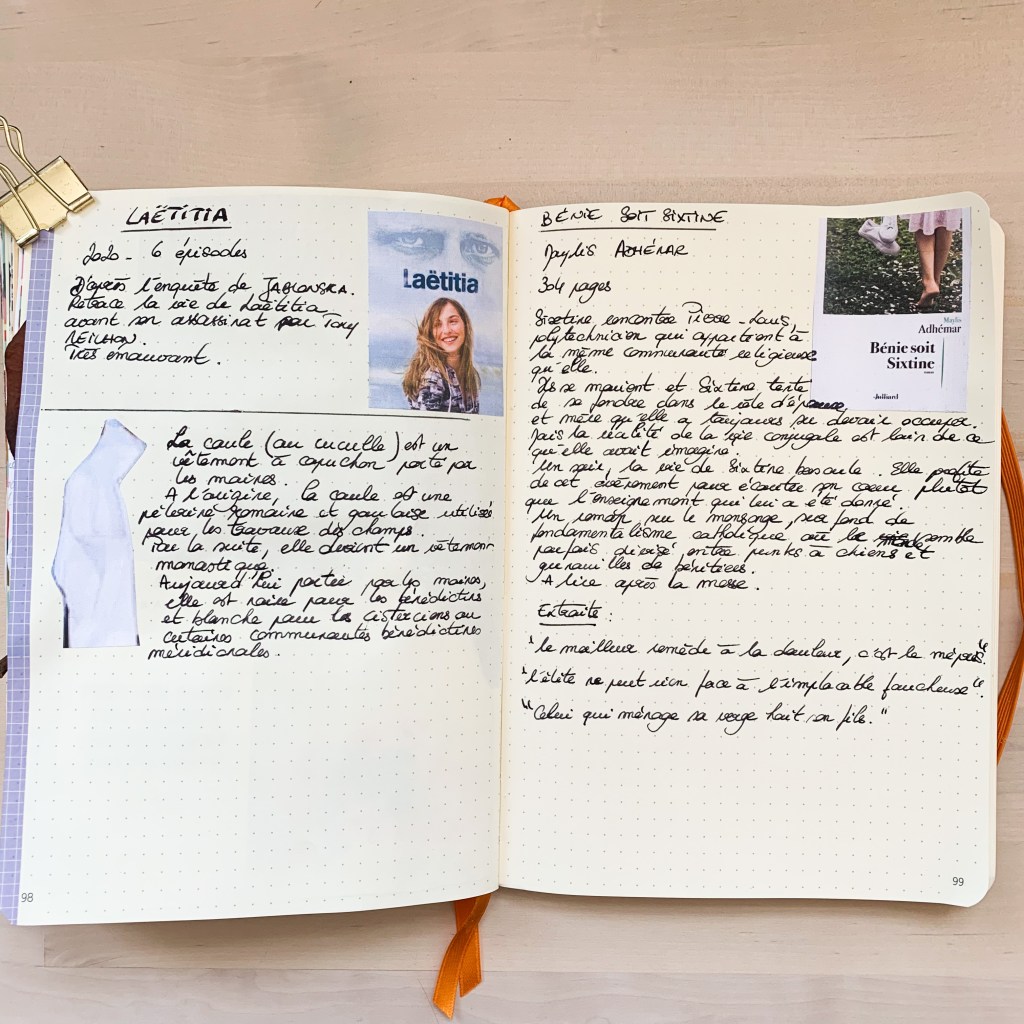 LAËTITIA
2020 - 6 épisodes
D'après l'enquête de JABLONSKA.
Retrace la vie de Laëtitia
avant son assassinat par Tony
MEILHON.
Très émouvant.
Laëtitia
La coule (ou cuculle) est un
vêtement à capuchon porté par
les moines.
A l'origine, la coule est une
pèlerine romaine et gauloise utilisée
pour les travaux des champs.
Par la suite, elle devient un vêtement
monastique.
Aujourd'hui portée par les moines,
elle est noire pour les bénédictins
et blanche pour les cisterciens ou
certaines communautés bénédictines
méridionales.
98
BÉNIE SOIT SIXTINE
Maylis ADHÉMAR
304 pages
Sixtine rencontre Pierre-Louis,
polytechnicien qui appartient à
la même communauté religieuse
qu'elle.
Ils se marient et Sixtine tente
de se fondre dans le rôle d'épouse
et mère qu'elle a toujours su devoir occuper.
Mais la réalité de la vie conjugale est loin de ce
qu'elle avait imaginé.
Un soir, la vie de Sixtine bascule. Elle profite
de cet évènement pour écouter son coeur plutôt
que l'enseignement qui lui a été donné.
Un roman sur le mensonge, sur fond de
fondamentalisme catholique où le monde semble
parfois divisé entre punks à chiens et
grenouilles de bénitiers.
A lire après la messe.
Maylis
Adhémar
Bénie soit
Sixtine
roman
Julliard
Extraits :
"le meilleur remède à la douleur, c'est le mépris".
"l'élite ne peut rien face à l'implacable faucheuse".
"Celui qui ménage sa verge hait son fils."
99